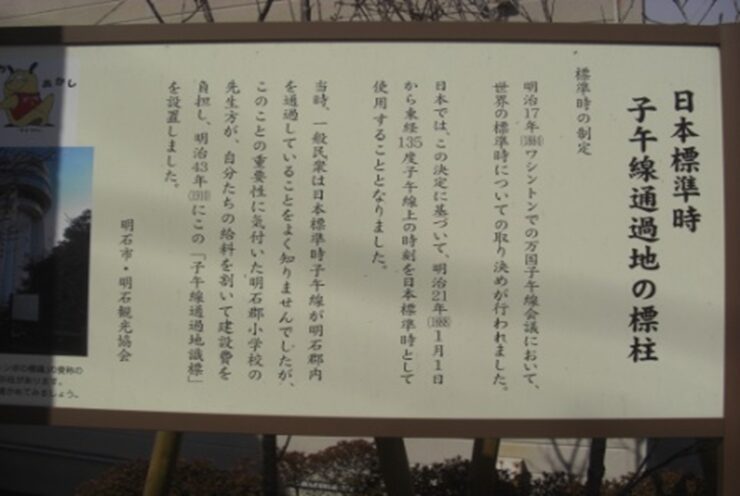 日本標準時
子午線通過地の標柱
標準時の制定
明治17年(1884)ワシントンでの万国子午線会議において、
世界の標準時についての取り決めが行われました。
日本では、この決定に基づいて、明治21年(1888)1月1日
から東経135度子午線上の時刻を日本標準時として
使用することとなりました。
当時、一般民衆は日本標準時子午線が明石郡内
を通過していることをよく知りませんでしたが、
このことの重要性に気付いた明石郡小学校の
先生方が、自分たちの給料を割いて建設費を
負担し、明治43年(1910)にこの「子午線通過地識標」
を設置しました。
明石市・明石観光協会
あかし